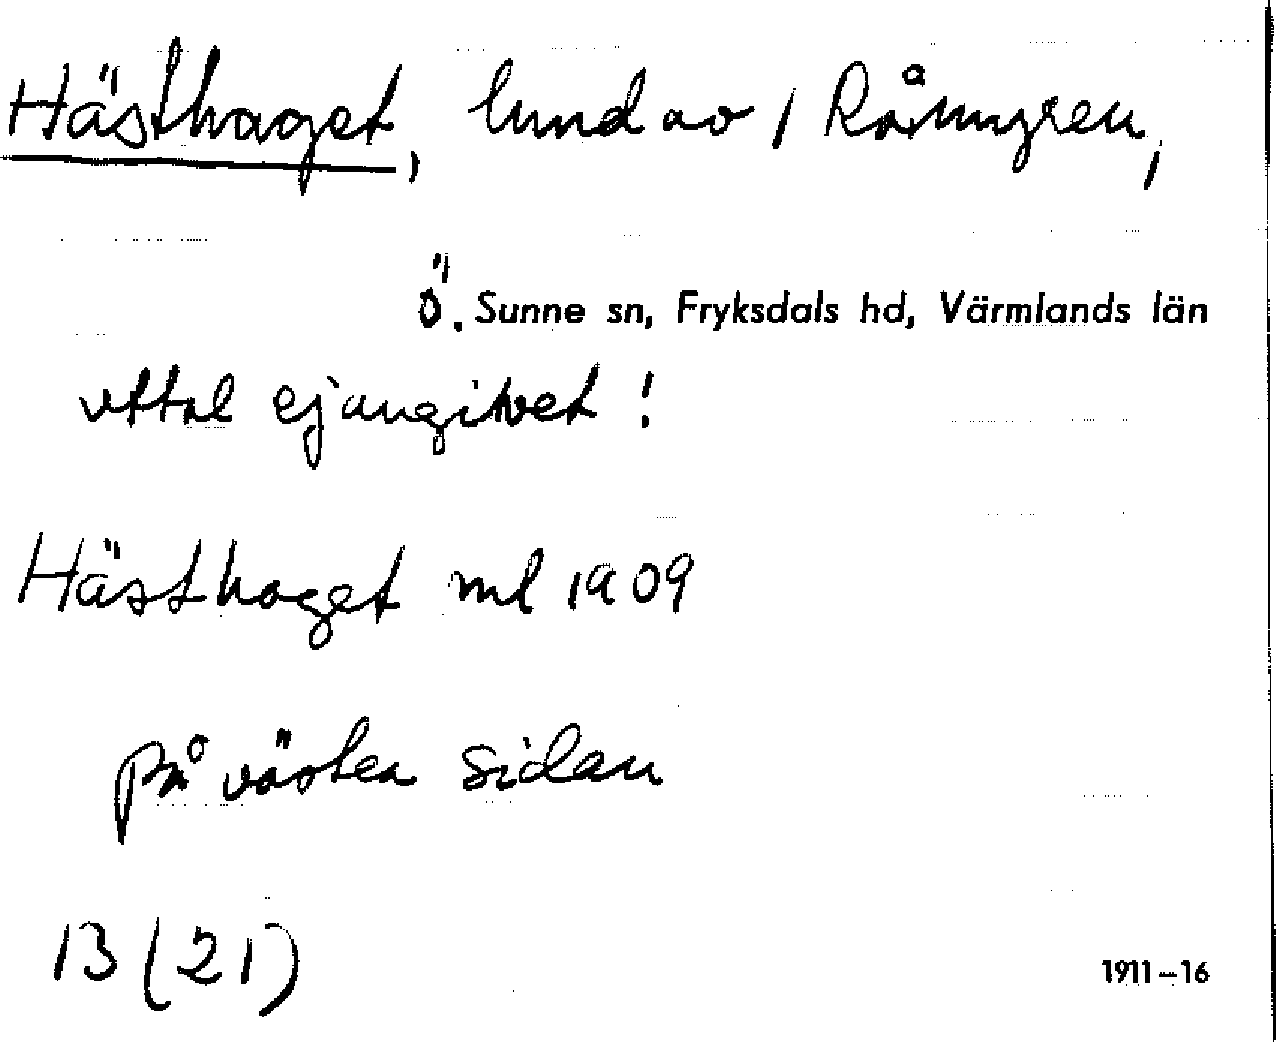 Hästhaget, lund av / Råmyren,
Ö. Sunne sn, Fryksdals hd, Värmlands län
uttal ej angivet!
Hästhaget ml 1909
på västra sidan
13 (21)
1911–16